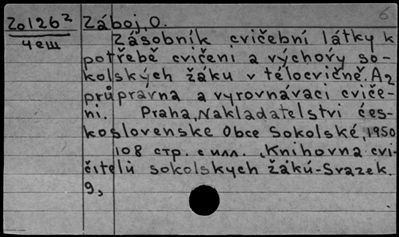 Zo126² Záboj, O. 6
чеш Zásobník cvičební látky k
potřebě cvičeni a výchovy so-
kolských žáku v tělocvičně. A2
průpravna a vyrovnávaci cviče-
ni. Praha, Nakladatelstvi čes-
koslovenske Obce Sokolské, 1950
108 стр. с илл. (Knihovna cvi-
čitelů sokolskych žáků-Svazek
9,